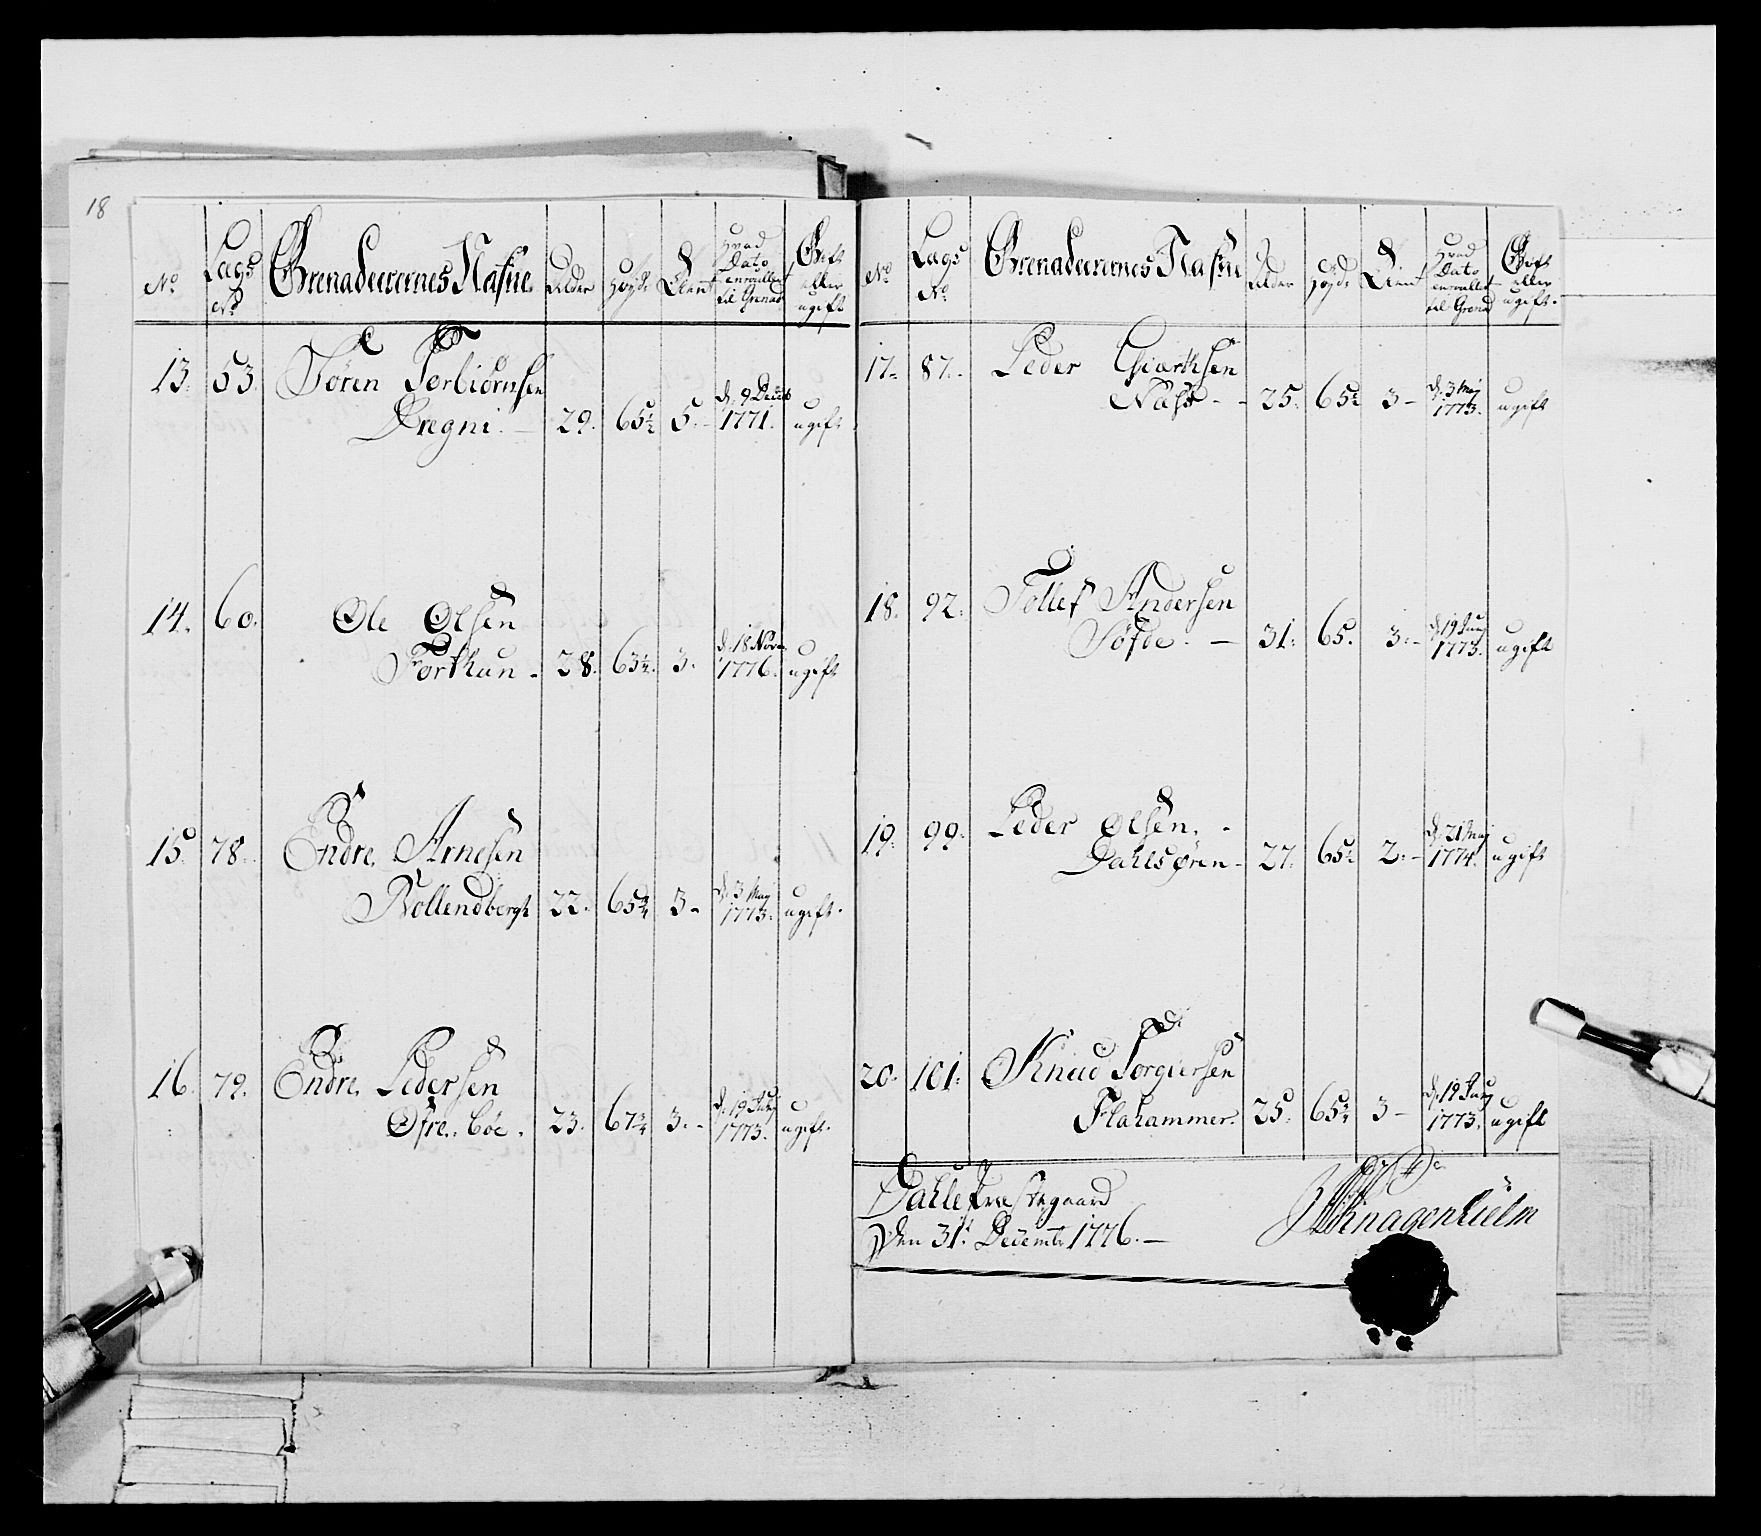 18
No Lags No Grenadeerernes Nafne Alder Høyde Tient Hvad Dato enroullert til Grenad Gift eller ugift
13. 53. Søren Torbiörnsen
Dregni. 29. 65½ 5. d. 9 Decb 1771. ugift
14. 60. Ole Olsen
Forthun 28. 63½. 3. d. 18 Nov. 1776. ugift
15. 78. Endre Arnesen
Nollendbergh 22. 65¾ 3 d. 3 May 1773. ugift.
16. 79. Endre Pedersen
Øfre böe. 23. 67¾ 3. d. 19 Juny 1773. ugift.
No Lags No. Grenadeerernes Nafne Alder Høyde Tient Hvad Dato enroullert til Grenad Gift eller ugift.
17. 87. Peder Giarthsen
Næss 25. 65½ 3 d. 3 May 1773. ugift
18. 92. Tollef Andersen
Söfde. 31. 65. 3. d. 19 Juny 1773. ugift
19. 99. Peder Olsen.
Dahlsøren 27. 65½ 2. d. 21 May 1774. ugift
20. 101. Knud Torgiersen
Flahammer. 25. 65¾ 3 d. 19 Juny 1773. ugift
Dahle Præstegaard
Den 31t Decembr 1776.
Knagenhielm